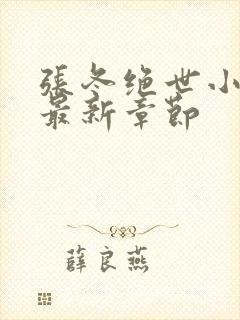 張冬绝世小
最新章節
薛良燕